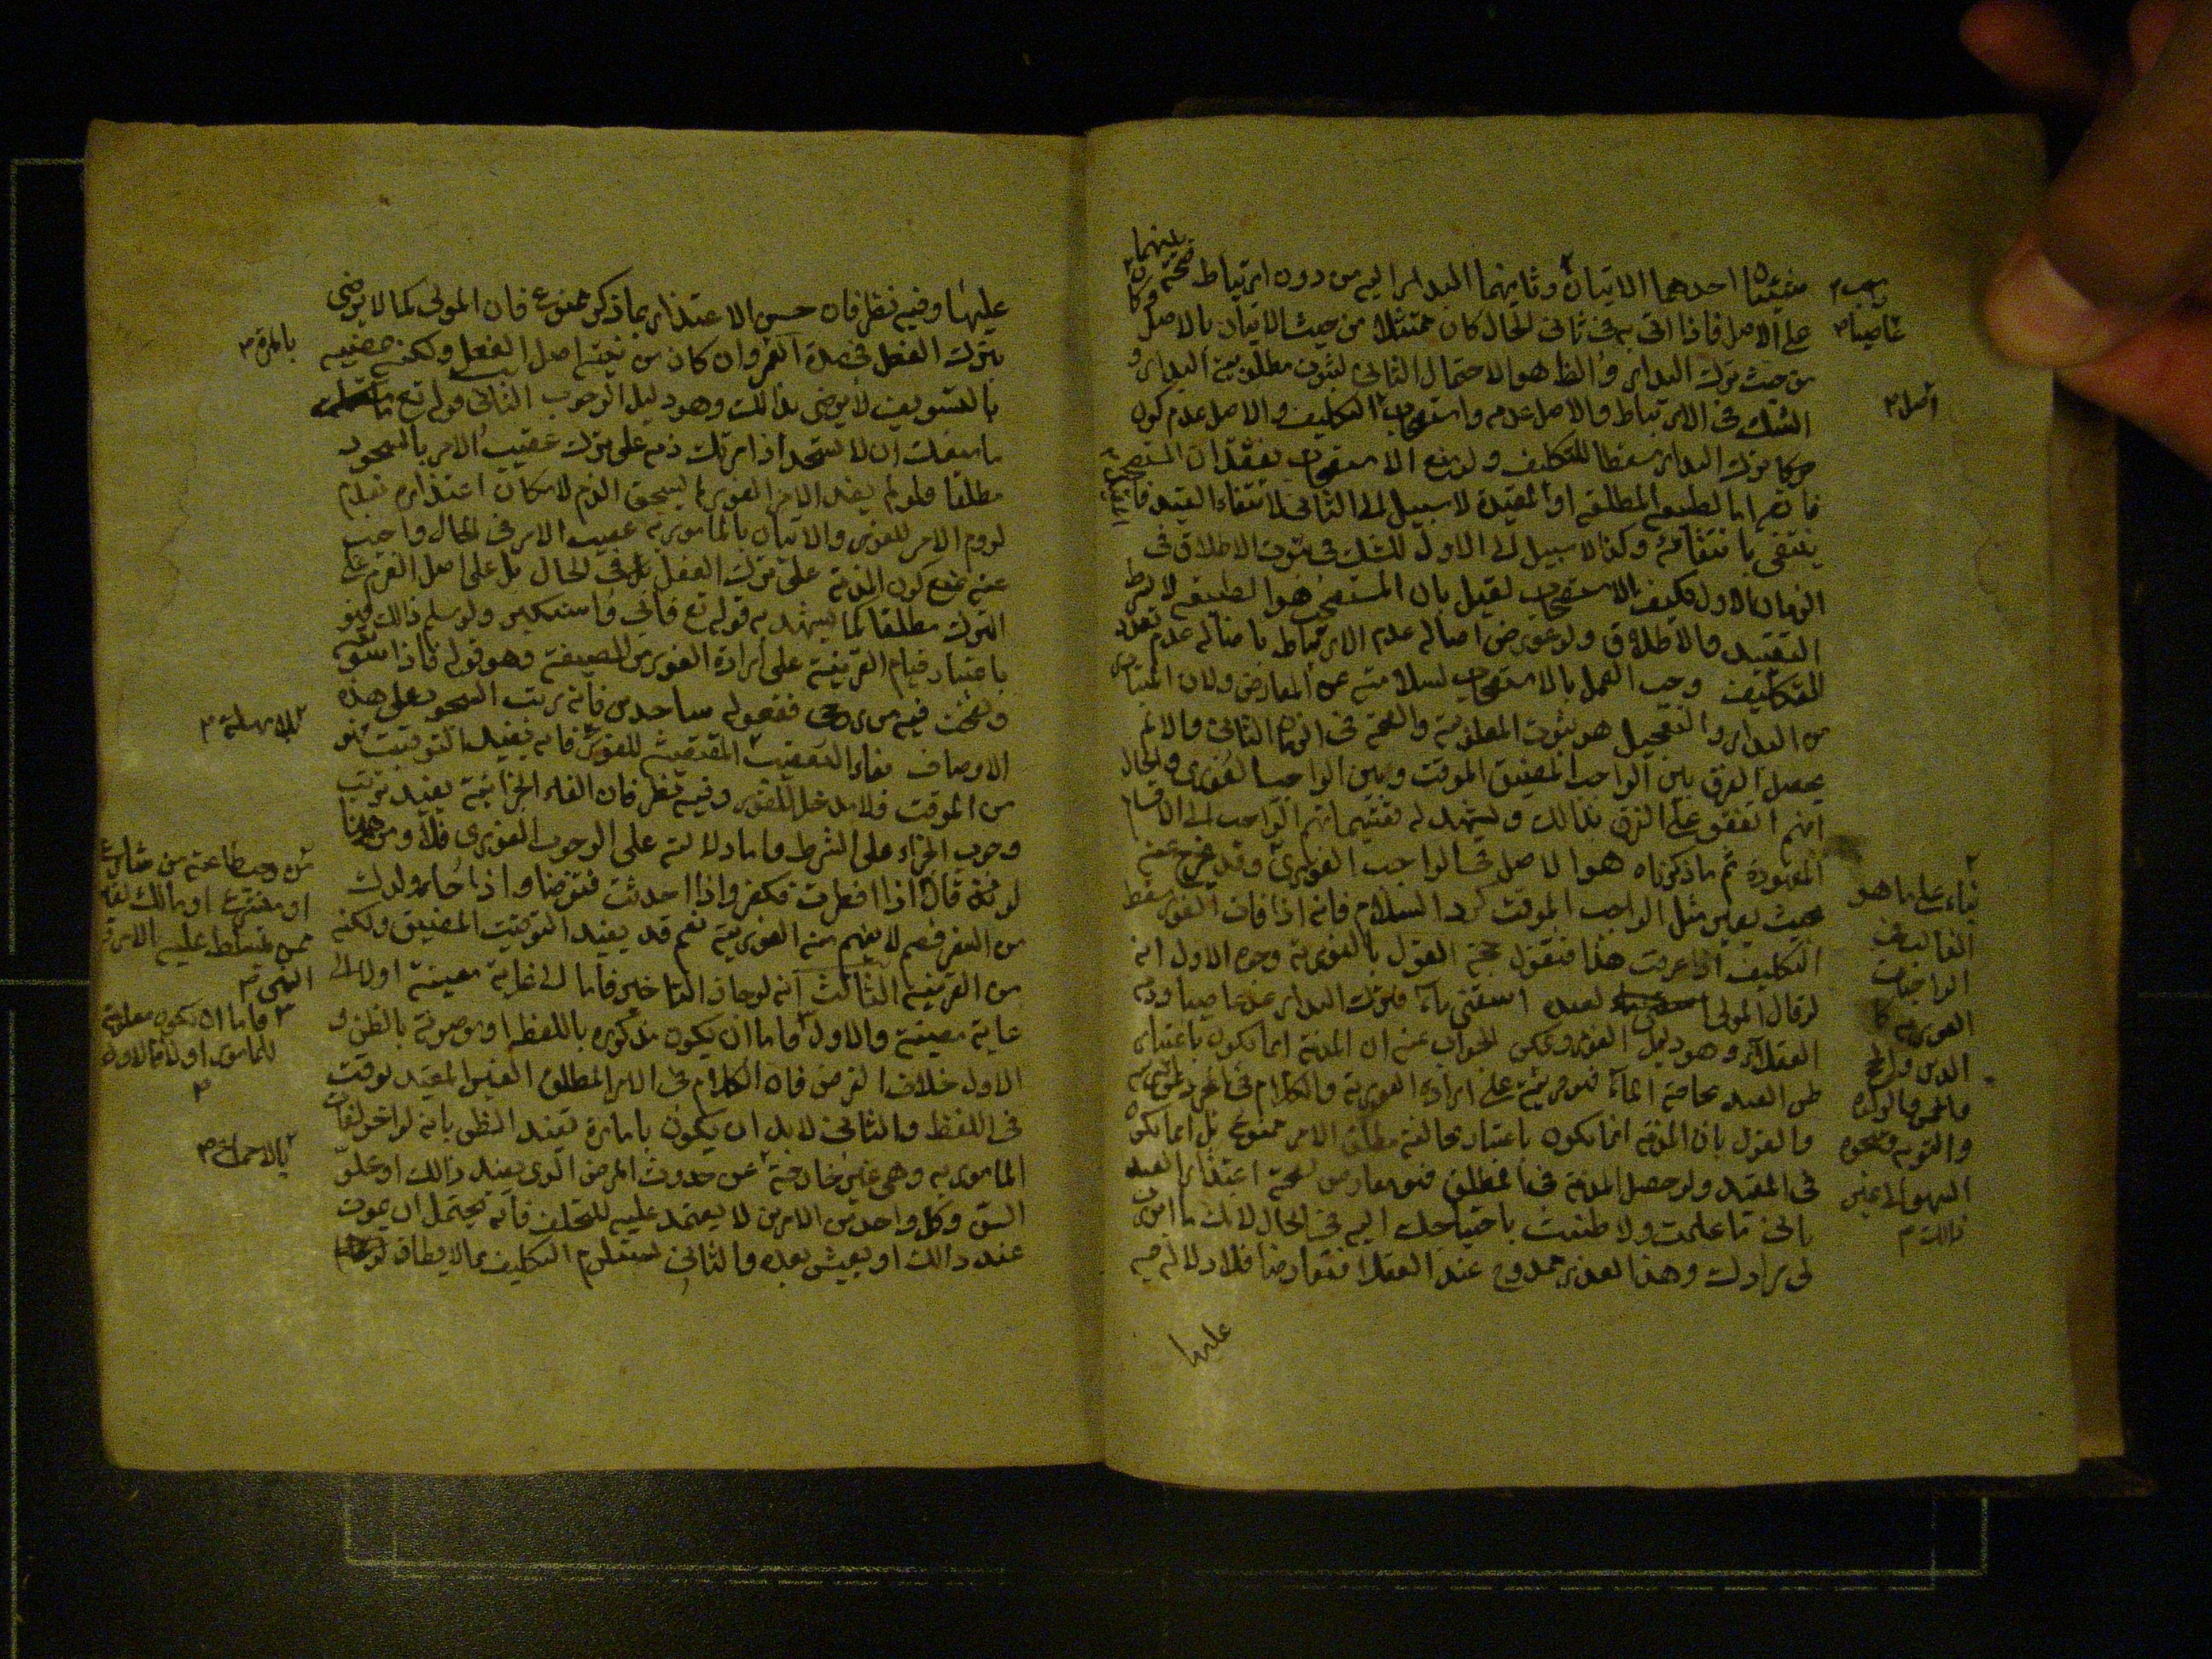 شيئان احدهما الاتيان وثانيهما البدار اليه من دون ارتباط بينهما
على الاصل فاذا اتى به فى ثانى الحال كان ممتثلا من حيث الاتيان بالاصل
من حيث ترك البدار والظ هو الاحتمال الثانى لثبوت مطلوبية البدار و
الشك فى الارتباط والاصل عدمه واستصحاب التكليف والاصل عدم كون
ترك البدار مسقطا للتكليف ولو منع الاستصحاب بفقدان المستصحب
فانه اما الطبيعة المطلقة او المقيدة لا سبيل الى الثانى لانتفاء القيد
ينتفى بانتفائه وكذا لا سبيل الى الاول للشك فى ثبوت الاطلاق فى
الزمان الاول فكيف بالاستصحاب لقيل بان المستصحب هو الطبيعة لا بشرط
التقييد والاطلاق ولو عورض اصالة عدم الارتباط باصالة عدم تعدد
التكليف وجب العمل بالاستصحاب لسلامته عن المعارض ولان المتبادر
من البدار والتعجيل هو ثبوت المطلوبية والصحة فى الزمان الثانى والا لم
يحصل الفرق بين الواجب المضيق الموقت وبين الواجب الفورى والحال
انهم اتفقوا على الفرق بذلك ويشهد له تقسيماتهم الواجب الى الاقسام
المعهودة ثم ما ذكرناه هو الاصل فى الواجب الفورى وقد يخرج عنه
بحيث يصير مثل الواجب الموقت كرد السلام فانه اذا فات الفور سقط
التكليف اذا عرفت هذا فنقول حجة القول بالفورية وجوه الاول انه
لو قال المولى لعبده اسقنى ماء فترك البدار عد عاصيا وذمه
العقلاء وهو دليل الفور ويمكن الجواب عنه ان المذمة انما تكون باعتبار
ظن العبد بحاجة الماء فهو قرينة على ارادة الفورية والكلام فى المجرد
والقول بان المذمة انما تكون باعتبار مخالفة مطلق الامر ممنوع بل انما تكون
فى المقيد ولو حصل المذمة فى المطلق فهو معارض لصحة اعتذار العبد
بانى ما علمت ولا ظننت باحتياجك اليه فى الحال لانك ما امرتنى
لى مرادك وهذا العذر ممدوح عند العقلاء فتعارضا فلا دلالة فيه
عليها
عاصيا
بناء على ما هو
الغالب فى
الواجبات
الفورية كا
الدين والحج
والخمس والزكوة
والتوبة وسجود
السهو الا غير
ذلك
عليها وفيه نظر فان حسن الاعتذار بما ذكر ممنوع فان المولى كما لا يرضى
بترك الفعل فى مدة العمر وان كان من نيته اصل الفعل ولكنه
بالتسويف لا يرضى بذلك وهو دليل الوجوب الثانى قوله تع
ما منعك ان لا تسجد اذ امرتك ذمه على ترك عقيب الامر بالسجود
مطلقا فلو لم يفد الامر الفور لما يستحق الذم لامكان اعتذاره بعدم
لزوم الامر للفور والاتيان بالمامور به عقيب الامر فى الحال واجيب
عنه بمنع كون المذمة على ترك الفعل فى الحال بل على اصل العزم على
الترك مطلقا كما يشهد به قوله تع فابى واستكبر ولو سلم ذلك فهو
باعتبار قيام القرينة على ارادة الفور من الصيغة وهو قوله فاذا سويته
ونفخت فيه من روحى فقعوا له ساجدين فانه رتب السجود على هذه
الاوصاف بفاء التعقيب المقتضية للفور فانه يفيد التوقيت فهو
من الموقت فلا مدخل للفور وفيه نظر فان الفاء الجزائية يفيد ترتب
وجوب الجزاء على الشرط واما دلالته على الوجوب الفورى فلا ومن هنا
لو قال اذا افطرت فكفر واذا احدثت فتوضأ واذا جاء ولدك
من السفر فصم لا يفهم منه الفورية نعم قد يفيد التوقيت المضيق ولكنه
من القرينة الثالث انه لو جاز التاخير فاما الى غاية معينة او لا الى
غاية معينة والاول فاما ان يكون مذكورة باللفظ او موصوفة بالظن و
الاول خلاف الفرض فان الكلام فى الامر المطلق الغير المقيد بوقت
فى اللفظ والثانى لابد ان يكون بامارة تفيد الظن بانه لو اخر لفات
المامور به وهى غير خارجة عن حدوث المرض الذى يفيد ذلك او علو
السن وكل واحد من الامرين لا يعتمد عليه للتخلف فانه يحتمل ان يموت
عند ذلك او يعيش بعده والثانى يستلزم التكليف بما لا يطاق
بالمرة
بلا مهلة
او مالك
ممن يتسلط عليه الامر
انتهى
فاما ان يكون معلومة
للمامور او لا والاول